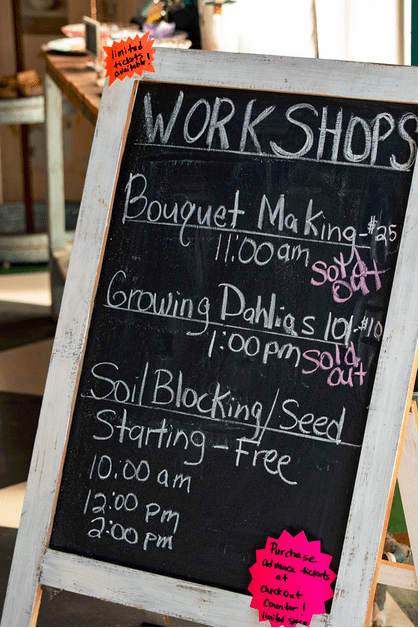 limited
tickets
available!
WORKSHOPS
Bouquet Making-$25
11:00am
Sold
out
Growing Dahlias 101-$10
1:00pm
Sold
out
Soil Blocking/Seed
Starting-Free
10:00 am
12:00 pm
2:00 pm
Purchase
advance tickets
at
checkout
counter!
limited